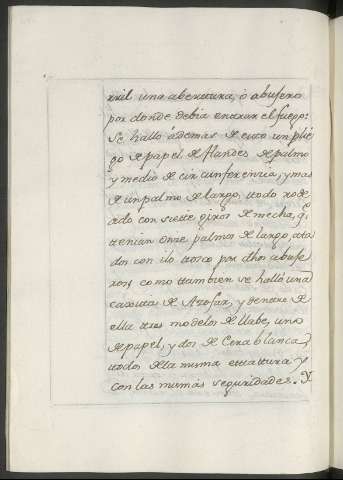 rril una abertura, ò abujero
por donde debia entrar el fuego:
Se halló ádemas de esto un plie
go de papel de flandes de palmo
y medio de circunferencia, y mas
de un palmo de largo, todo rode
ado con siette giros de mecha, q.
tenian onze palmos de largo, ata
dos con ilo torco por dhos abuje
ros, como ttambien se halló una
caxitta de Azofar, y dentro de
ella tres modelos de llabe, uno
de papel, y dos de Cera blanca,
ttodos de la misma esttattura y
con las mismas seguridades. Y